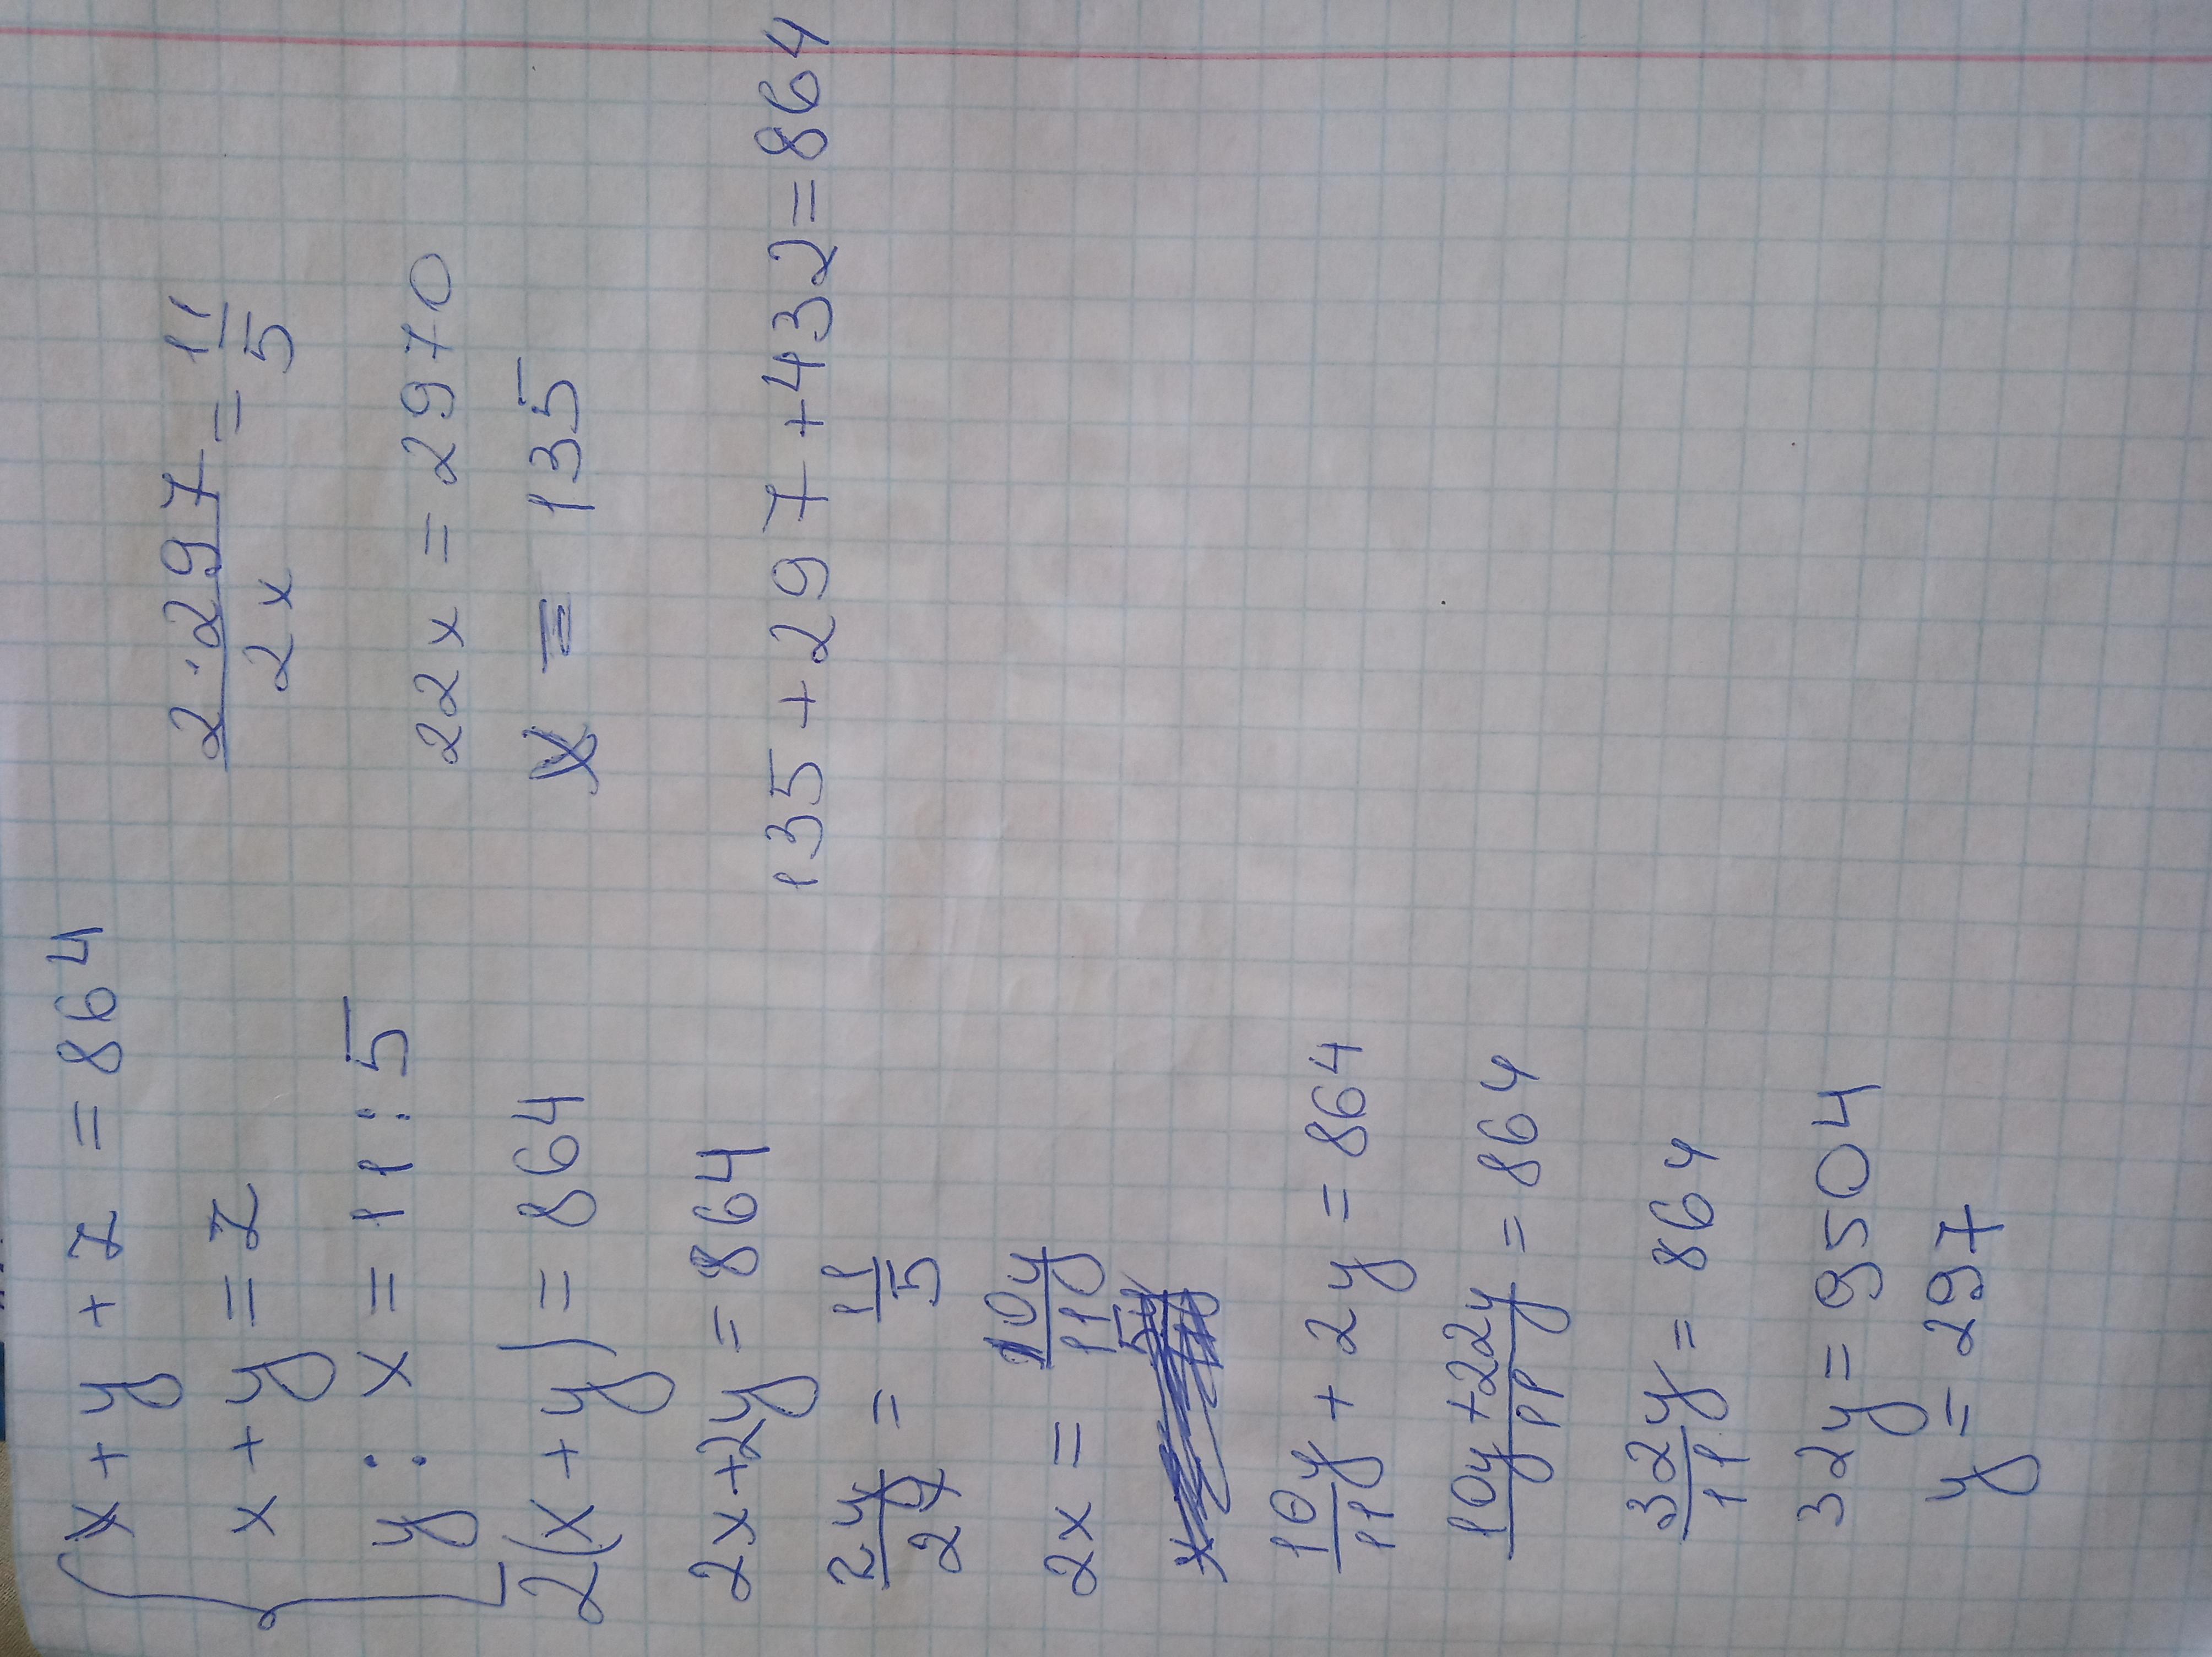 x + y + z = 864
x + y = z
y : x = 11 : 5
2(x + y) = 864
2x + 2y = 864
2y/2x = 11/5
2x = 10y/11
10y/11 + 2y = 864
10y + 22y/11 = 864
32y/11 = 864
32y = 9504
y = 297
2 · 297/2x = 11/5
22x = 2970
x = 135
135 + 297 + 432 = 864